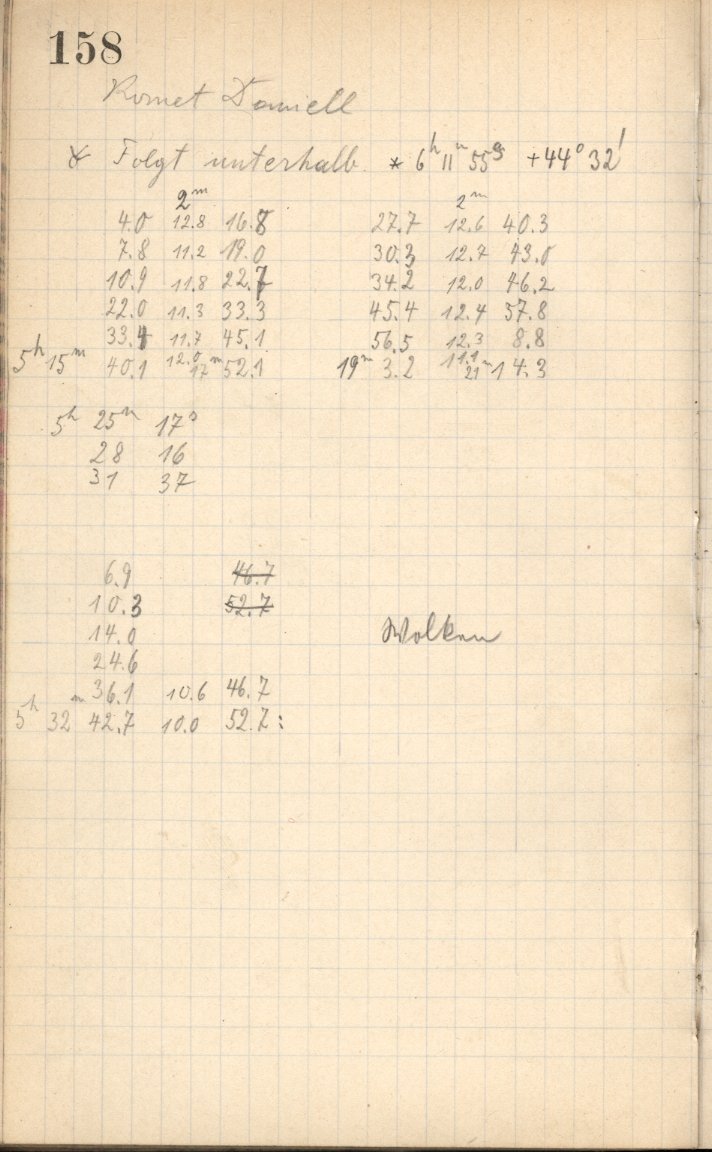 158
Komet Daniell
☄ Folgt unterhalb * 6ʰ 11ᵐ 55ˢ +44° 32'
2ᵐ 2ᵐ
4.0 12.8 16.8 27.7 12.6 40.3
7.8 11.2 19.0 30.3 12.7 43.0
10.9 11.8 22.7 34.2 12.0 46.2
22.0 11.3 33.3 45.4 12.4 57.8
33.4 11.7 45.1 56.5 12.3 8.8
5ʰ 15ᵐ 40.1 12.0 17ᵐ 52.1 19ᵐ 3.2 11.1 21ᵐ 14.3
5ʰ 25ᵐ 17ˢ
28 16
31 37
6.9 46.7
10.3 52.7
14.0 Wolken
24.6
36.1 10.6 46.7
5ʰ 32ᵐ 42.7 10.0 52.7: